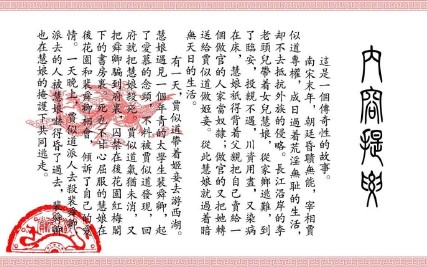 内容提要
這是一個傳奇性的故事。
南宋末年，朝廷昏聵無能，宰相賈
似道專權，成日過着荒淫無恥的生活，
却不去抵抗外族的侵略。長江沿岸的李
老頭兒帶着女兒慧娘，從家鄉逃難，到
了臨安，投親不遇，川資用盡，又染病
在床，慧娘祇得背着父親把自己賣給一
個做官的人家當奴隸；做官的又把她轉
送給賈似道做姬妾。從此慧娘就過着暗
無天日的生活。
有一天，賈似道帶着姬妾去游西湖。
慧娘遇見一個年青的太學生裴舜卿，起
了愛慕的念頭，不料被賈似道發現，回
府就把慧娘殺死。賈似道氣猶未消，又
把舜卿騙到府來，囚禁在後花園紅梅閣
下的書房裏。死也不甘心屈服的慧娘在
後花園和裴舜卿相會，傾訴了自己的愛
情。一天晚上，賈似道派人去殺裴舜卿，
派去的人被慧娘嚇得昏了過去，裴舜卿
也在慧娘的掩護下共同逃走。